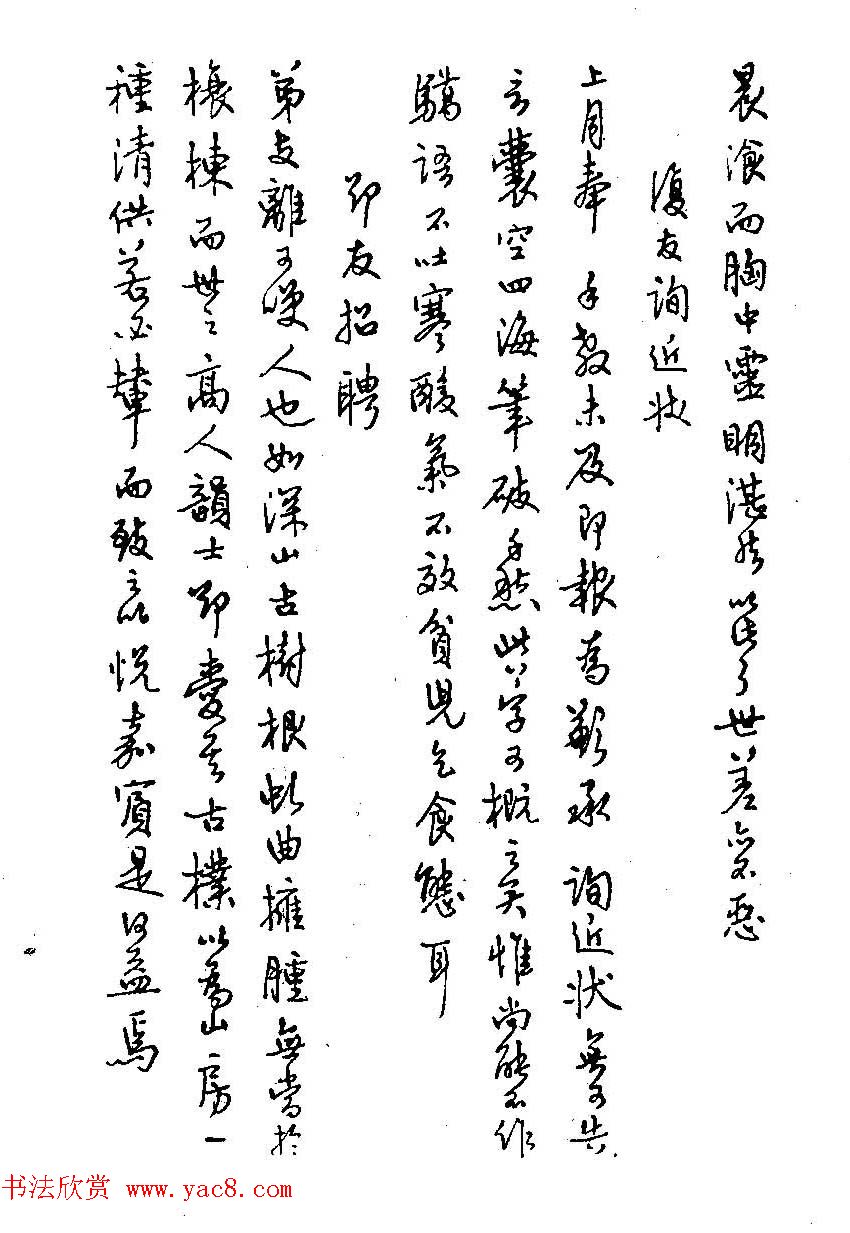 晨飡而胸中靈明湛然以此了世差亦不惡
復友詢近狀
上月奉 手教未及即報為歉承 詢近狀無可告
言囊空四海筆破千愁此八字可概之矣惟尚能不作
驕語不吐寒酸氣不效貧兒乞食態耳
卻友招聘
弟支離可嘆人也如深山古樹根虬曲擁腫無當於
榱棟而世之高人韻士卻愛其古樸以為山房一
種清供若必輦而致之以悅嘉賓是何益焉
书法欣赏 www.yac8.com